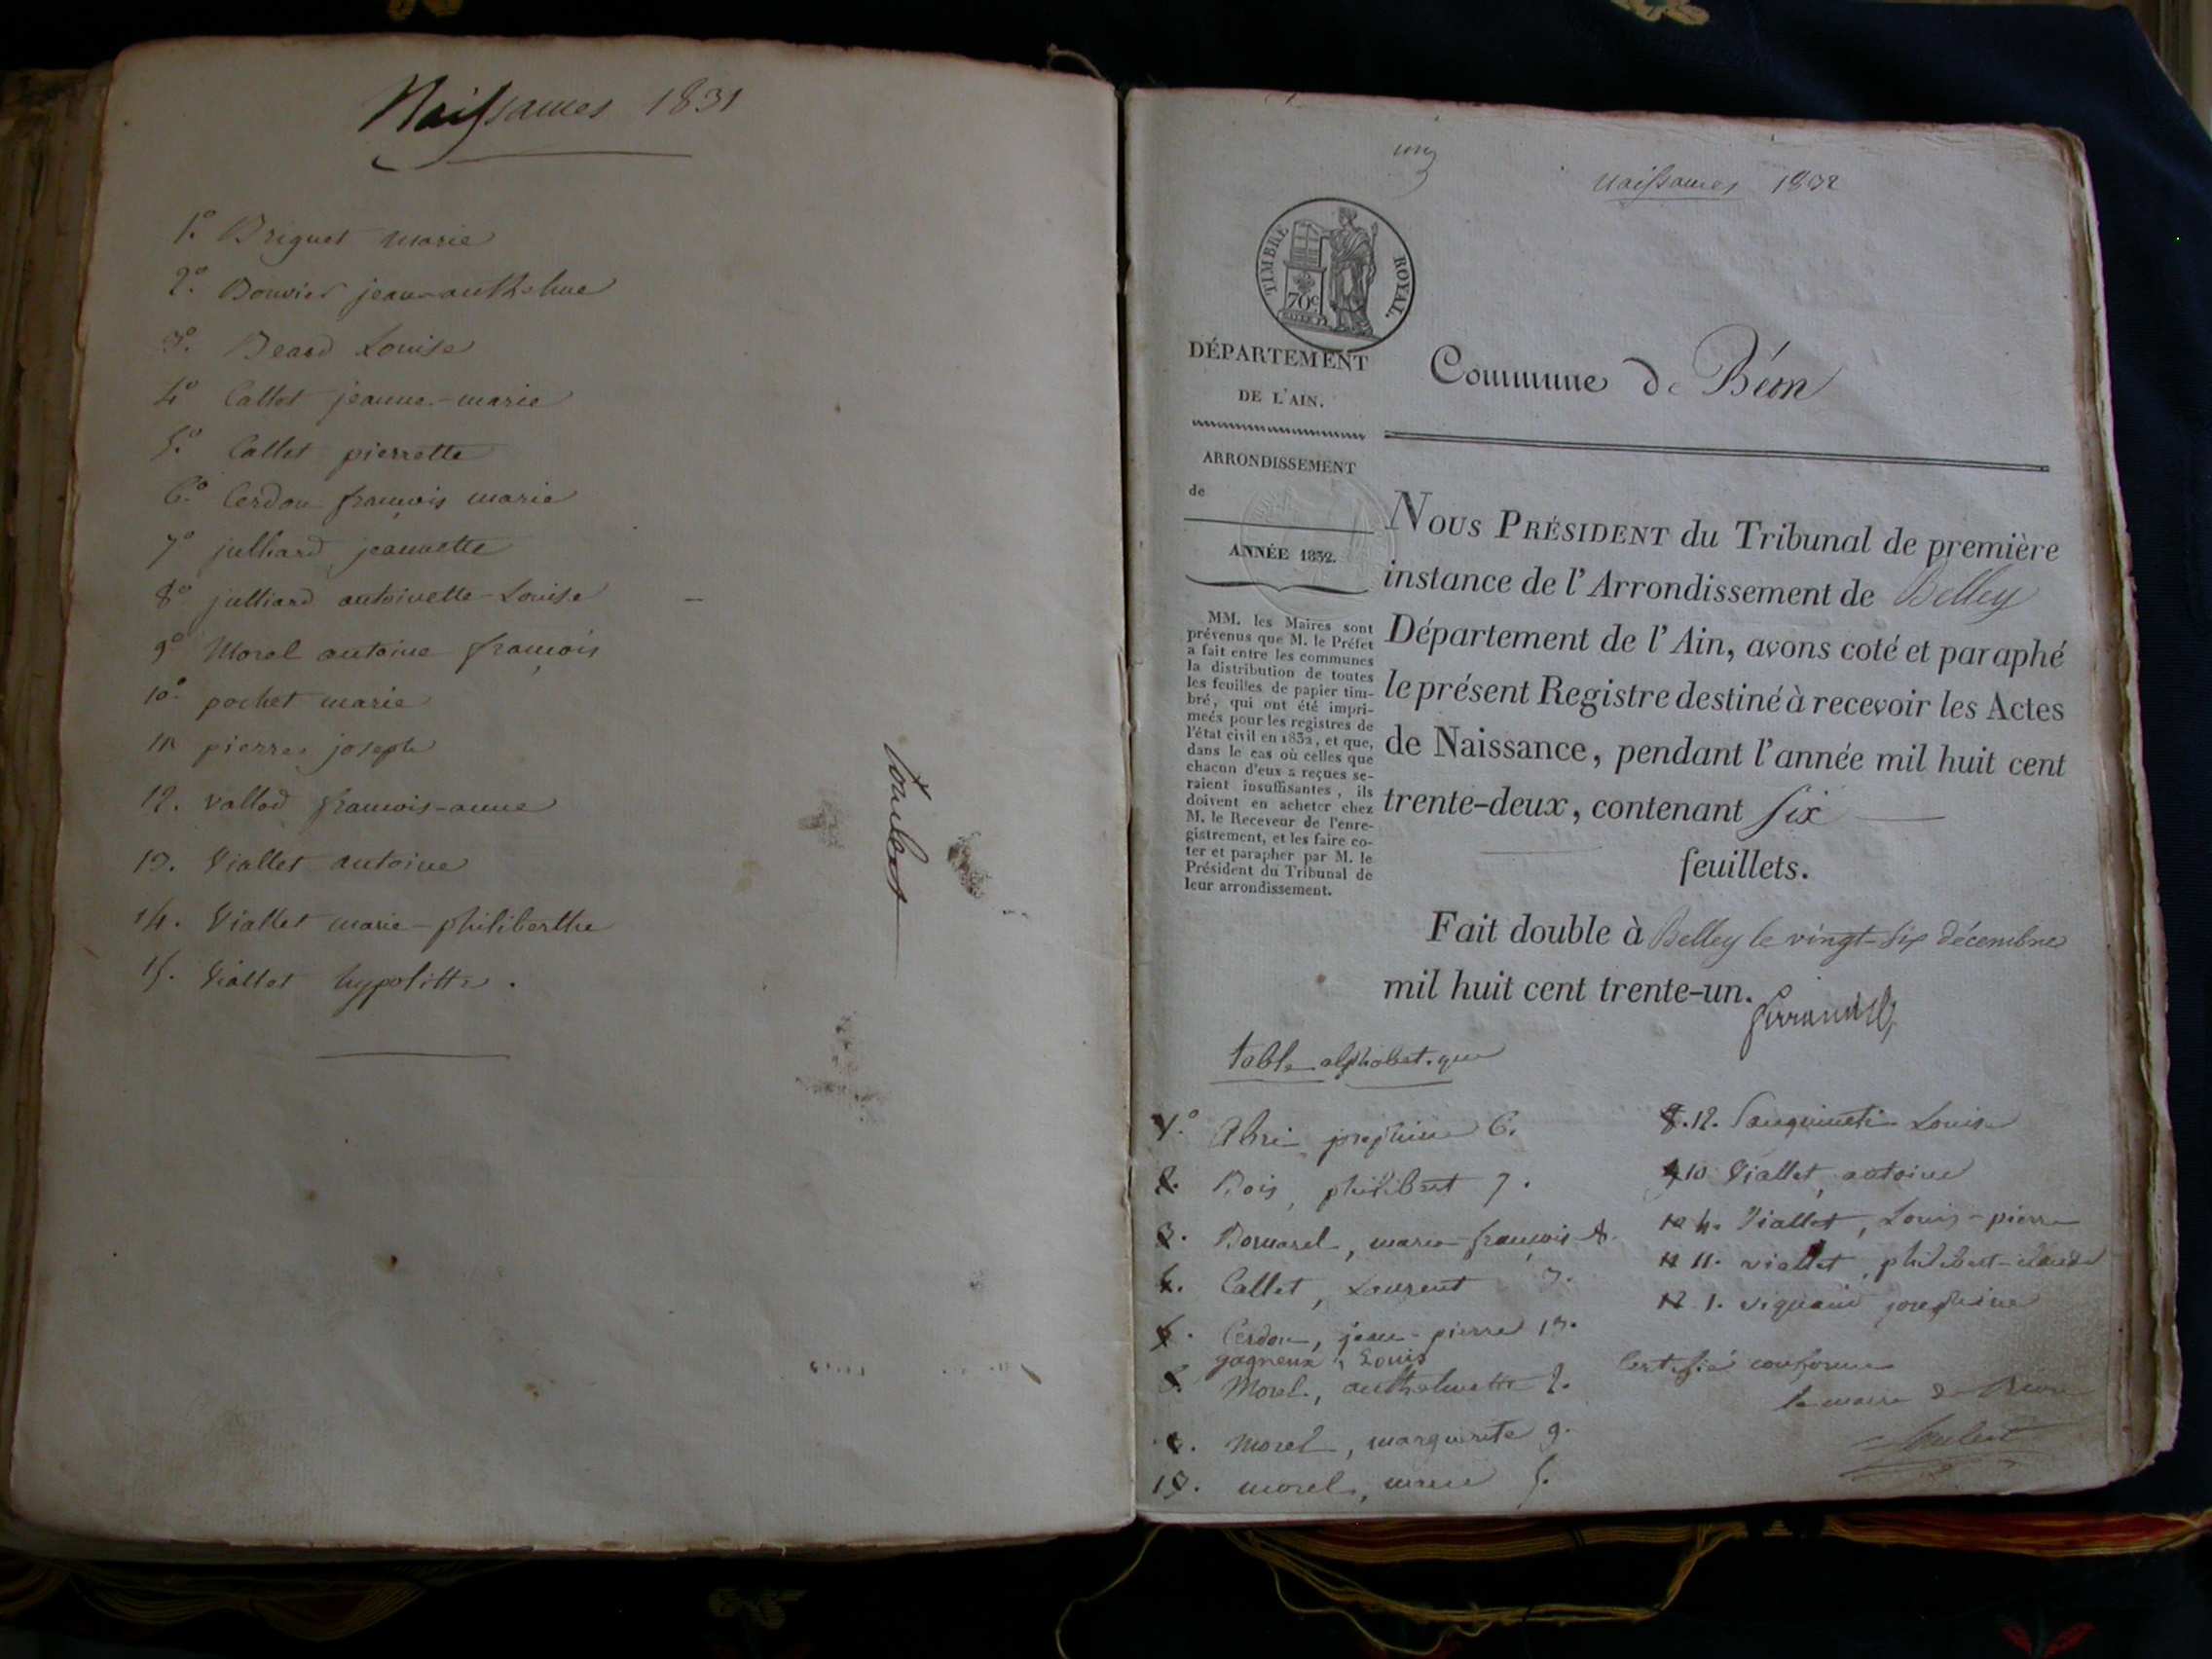 Naissances 1831
1.º Briguet marie
2.º Bouvier jean-anthelme
3.º Beard Louise
4º Callet jeanne-marie
5.º Callet pierrette
6.º Cerdon françois marie
7º julliard jeannette
8º julliard antoinette-Louise
9º Morel antoine françois
10.º pochet marie
11 pierre joseph
12. vallod françois-anne
13. Viallet antoine
14. Viallet marie-philiberthe
15. Viallet hypolitte.
naissances 1832
TIMBRE ROYAL.
70c
DÉPARTEMENT
DE L'AIN.
Commune de Béon
ARRONDISSEMENT
de
ANNÉE 1832.
MM. les Maires sont
prévenus que M. le Préfet
a fait entre les communes
la distribution de toutes
les feuilles de papier tim-
bré, qui ont été impri-
meés pour les registres de
l'état civil en 1832, et que,
dans le cas où celles que
chacun d'eux a reçues se-
raient insuffisantes, ils
doivent en acheter chez
M. le Receveur de l'enre-
gistrement, et les faire co-
ter et parapher par M. le
Président du Tribunal de
leur arrondissement.
NOUS PRÉSIDENT du Tribunal de première
instance de l'Arrondissement de Belley
Département de l'Ain, avons coté et paraphé
le présent Registre destiné à recevoir les Actes
de Naissance, pendant l'année mil huit cent
trente-deux, contenant six
feuillets.
Fait double à Belley le vingt-six décembre
mil huit cent trente-un.
table alphabétique
1.º josephine 6.
2. Bois, philibert 7.
3. Bornarel, marie françois 8.
4. Callet, Laurent 3.
5. Cerdon, jean-pierre 13.
gagneux, Louis
Morel, anthelmette 2.
Morel, marguerite 9.
morel, marie 5.
12. Sanguineti Louise
10 Viallet, antoine
4. Viallet, Louis-pierre
11. viallet, philibert-claude
1. vignand josephine
Certifié conforme
le maire de Béon